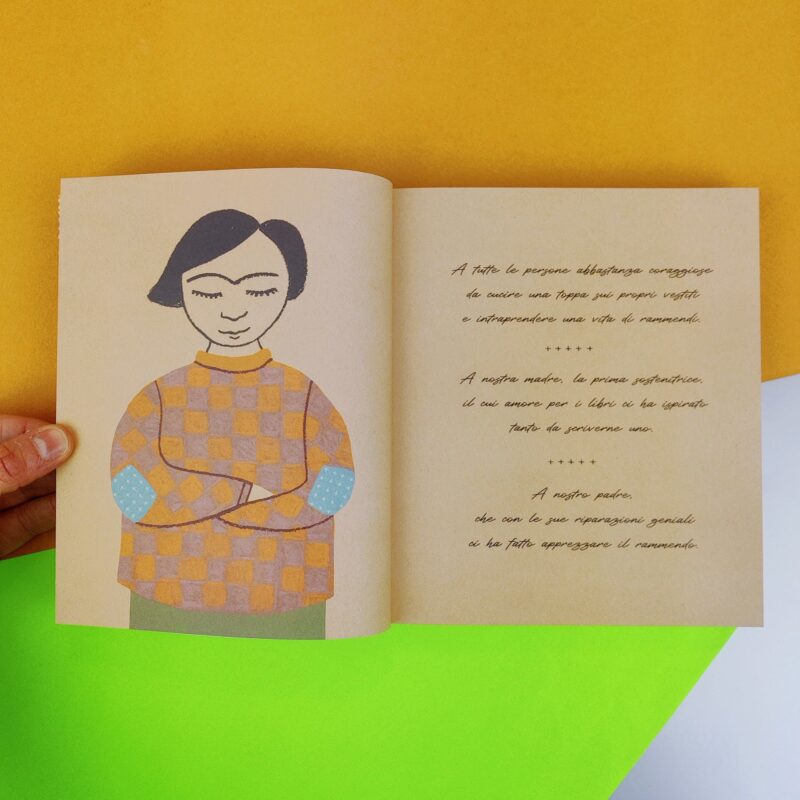 A tutte le persone abbastanza coraggiose
da cucire una toppa sui propri vestiti
e intraprendere una vita di rammendi.
+ + + + +
A nostra madre, la prima sostenitrice,
il cui amore per i libri ci ha ispirato
tanto da scriverne uno.
+ + + + +
A nostro padre,
che con le sue riparazioni geniali
ci ha fatto apprezzare il rammendo.